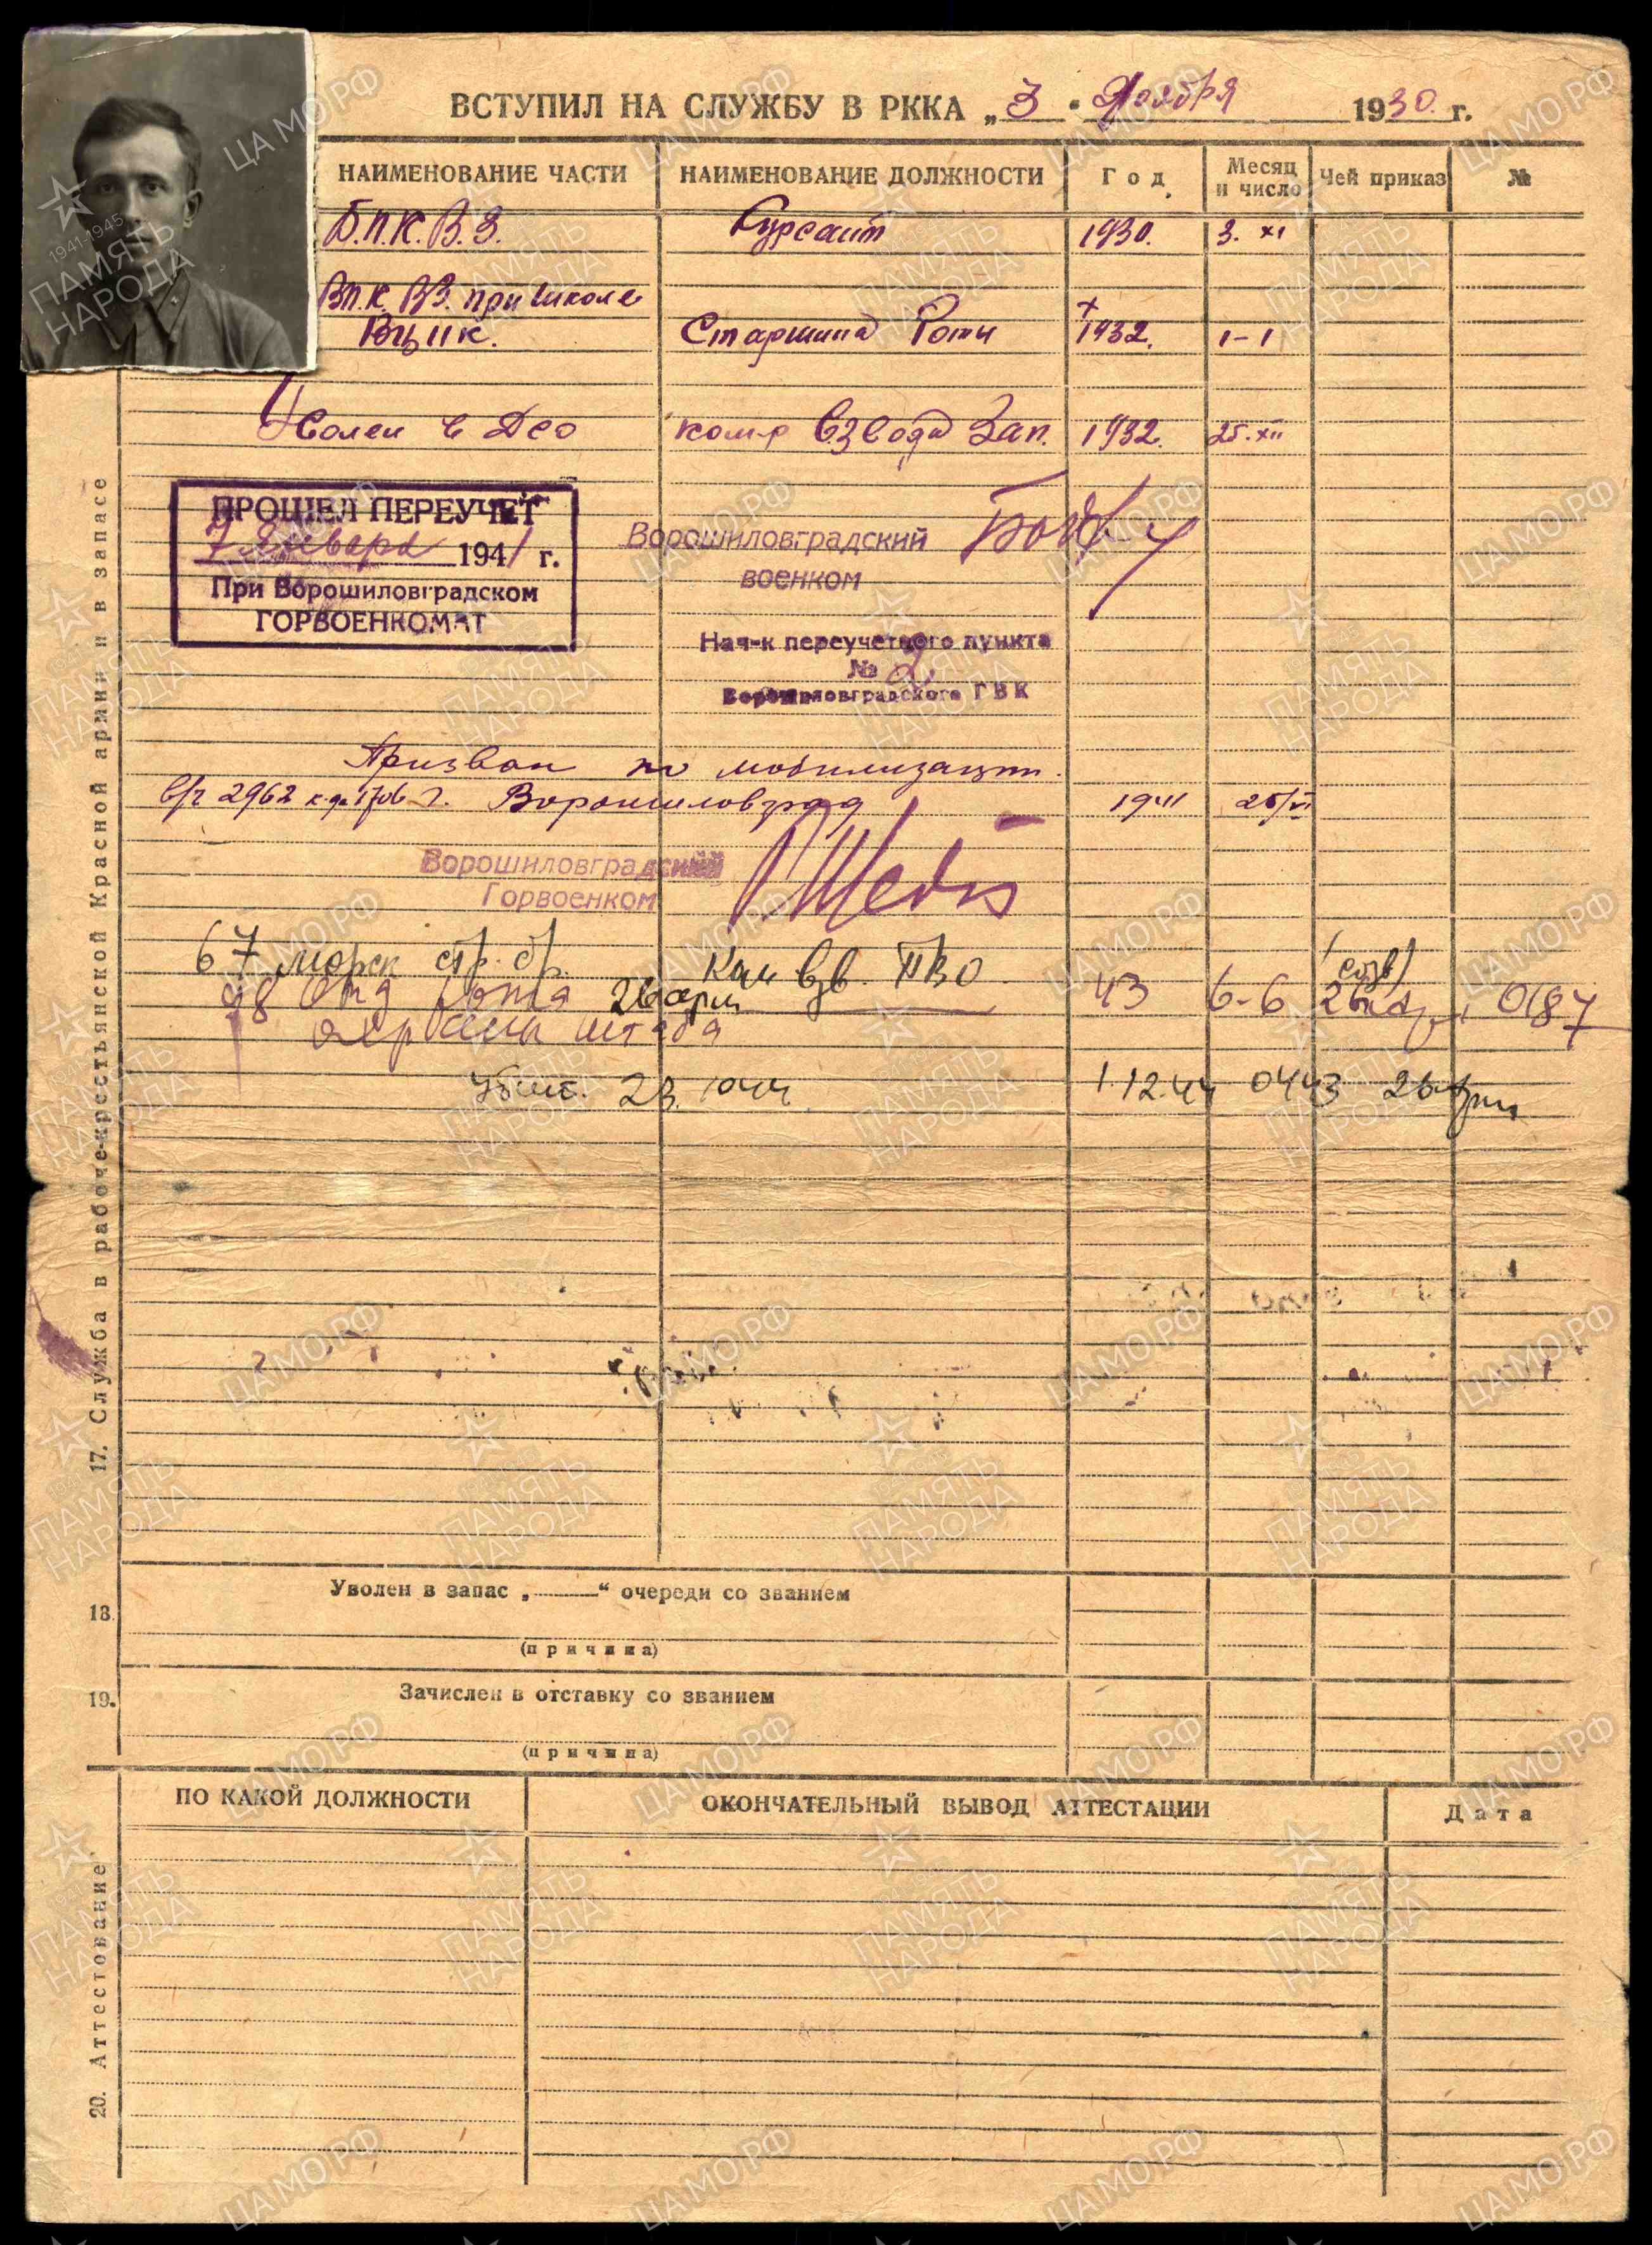 ВСТУПИЛ НА СЛУЖБУ В РККА „3" Ноября 1930 г.
НАИМЕНОВАНИЕ ЧАСТИ НАИМЕНОВАНИЕ ДОЛЖНОСТИ Год Месяц и число Чей приказ №
Б.П.К.В.З. Курсант 1930. 3. XI
Вп.К.ВЗ. при школе
ВЦИК. Старшина Роты 1932. 1-1
Уволен в Дсо ком-р Взвода Зап. 1932. 25. XII
ПРОШЕЛ ПЕРЕУЧЕТ
7 Января 1941 г.
При Ворошиловградском
ГОРВОЕНКОМАТ
Ворошиловградский
военком
Нач-к переучетного пункта
№ 2
Ворошиловградского ГВК
Призван по мобилизации.
в/ч 2962 г. Ворошиловград 1941 25/VI
Ворошиловградский
Горвоенком
67 морск стр. бр. Ком взв. ПВО
98 отд рота 26 арм 43 6-6 26 арм 0187
охраны штаба
Убит. 23. 1.12.44 0443 26 арм
17. Служба в рабоче-крестьянской Красной армии и в запасе
18. Уволен в запас „ “ очереди со званием
(причина)
19. Зачислен в отставку со званием
(причина)
20. Аттестование
ПО КАКОЙ ДОЛЖНОСТИ ОКОНЧАТЕЛЬНЫЙ ВЫВОД АТТЕСТАЦИИ Дата
ЦАМО.РФ
1941-1945
ПАМЯТЬ
НАРОДА